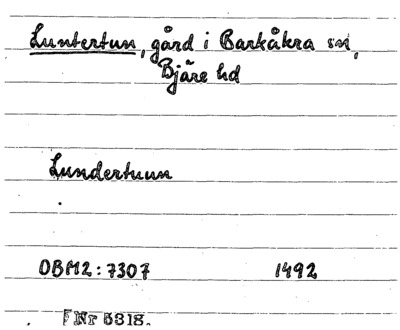 Luntertun, gård i Barkåkra sn,
Bjäre hd
Lundertuun
OBM2:7307 1492
Nr 5318.